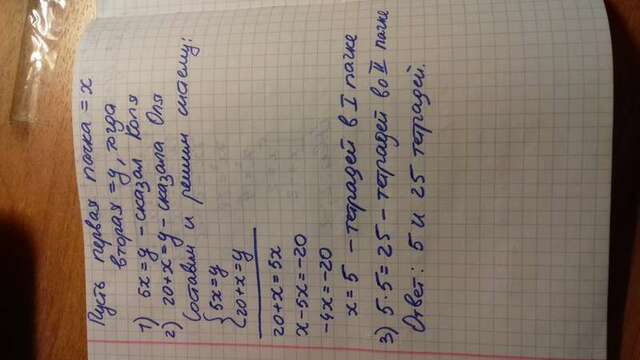 Пусть первая пачка = x
вторая = y, тогда
1) 5x = y - сказал Коля
2) 20+x = y - сказала Оля
Составим и решим систему:
{5x = y
{20+x = y
20+x = 5x
x-5x = -20
-4x = -20
x = 5 - тетрадей в I пачке
3) 5·5 = 25 - тетрадей во II пачке
Ответ: 5 и 25 тетрадей.